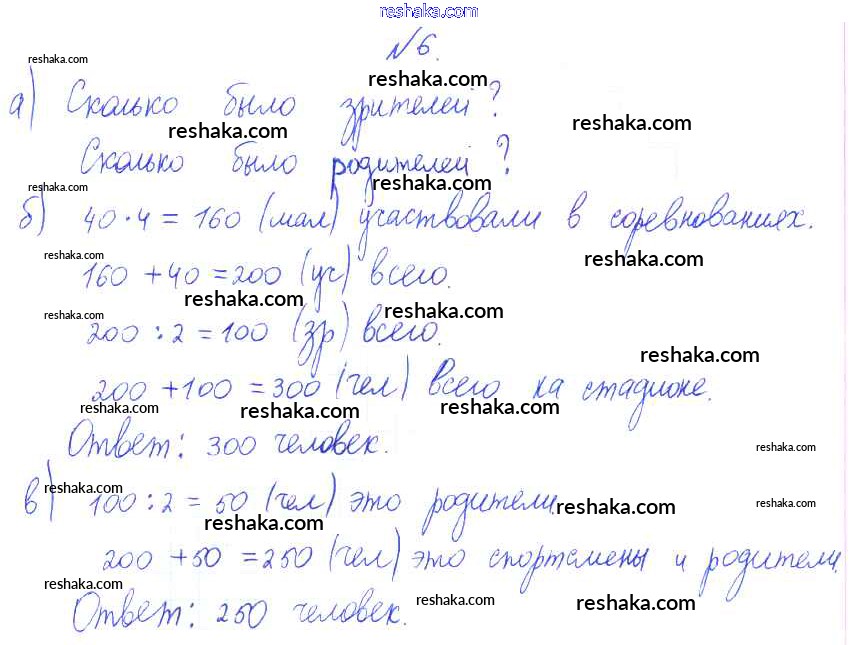 reshaka.com
№6.
reshaka.com
reshaka.com
а) Сколько было зрителей?
reshaka.com
reshaka.com
Сколько было родителей?
reshaka.com
reshaka.com
б) 40·4=160 (мал) участвовали в соревнованиях.
reshaka.com
reshaka.com
160+40=200 (уч) всего.
reshaka.com
reshaka.com
reshaka.com
200:2=100 (зр) всего.
reshaka.com
200+100=300 (чел) всего на стадионе.
reshaka.com
reshaka.com
reshaka.com
Ответ: 300 человек.
reshaka.com
reshaka.com
в) 100:2=50 (чел) это родители.
reshaka.com
reshaka.com
reshaka.com
200+50=250 (чел) это спортсмены и родители.
reshaka.com
reshaka.com
reshaka.com
Ответ: 250 человек.